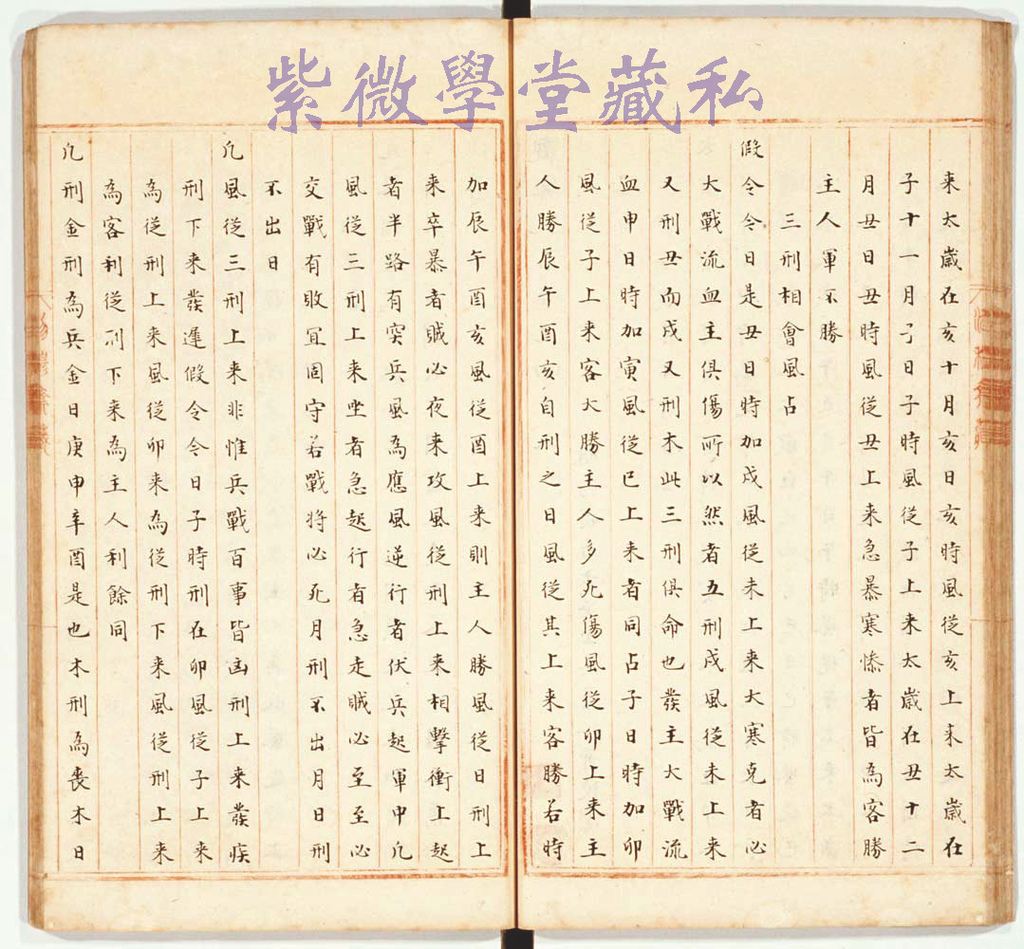 紫微學堂藏私
来太歲在亥十月亥日亥時風從亥上来太歲在
子十一月子日子時風從子上来太歲在丑十二
月丑日丑時風從丑上来急暴寒慘者皆為客勝
主人軍不勝
三刑相會風占
假令今日是丑日時加戍風從未上来大寒克者必
大戰流血主俱傷所以然者五刑戍風從未上来
又刑丑而戍又刑木此三刑俱命也發主大戰流
血申日時加寅風從巳上来者同占子日時加卯
風從子上来客大勝主人多死傷風從卯上来主
人勝辰午酉亥自刑之日風從其上来客勝若時
加辰午酉亥風從酉上来則主人勝風從日刑上
来卒暴者賊必夜来攻風從刑上来相擊衝上起
者半路有突兵風為應風逆行者伏兵起軍中凢
風從三刑上来坐者急起行者急走賊必至至必
交戰有敗冝固守若戰將必死月刑不出月日刑
不出日
凢風從三刑上来非惟兵戰百事皆凶刑上来發疾
刑下来發遲假令今日子時刑在卯風從子上来
為從刑上来風從卯来為從刑下来風從刑上来
為客利從刑下来為主人利餘同
凢刑金刑為兵金日庚申辛酉是也木刑為喪木日